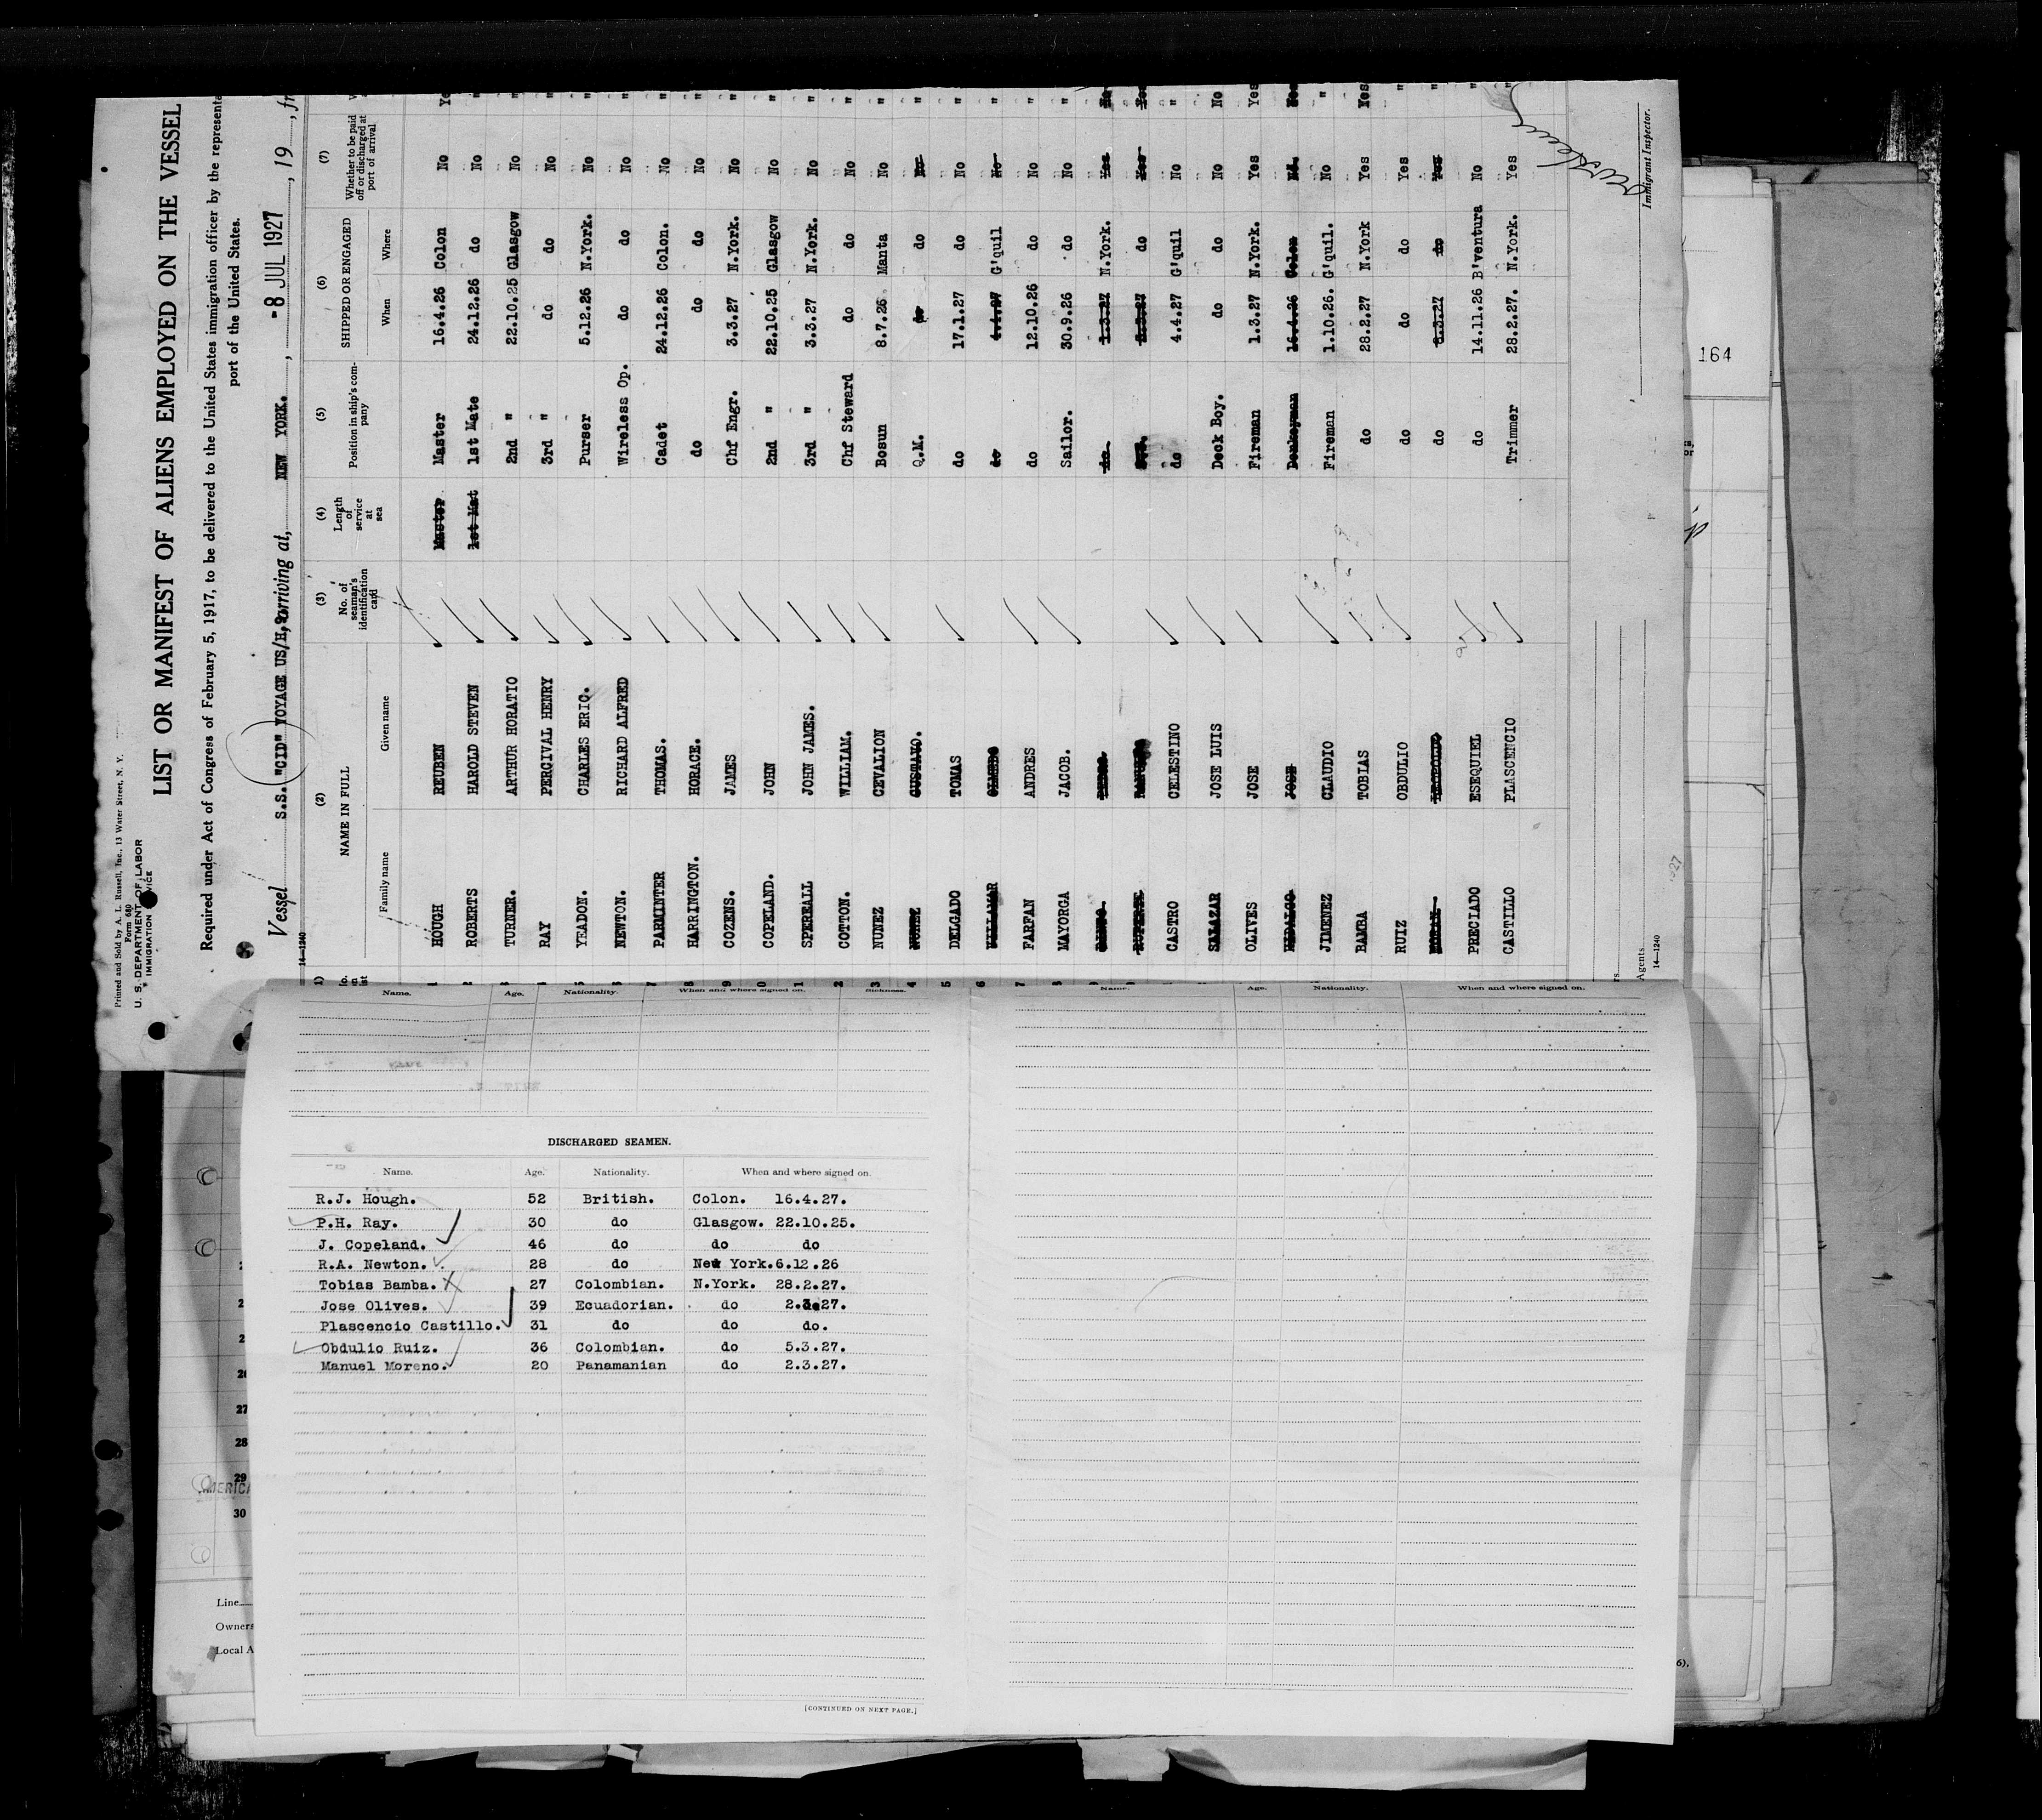 Printed and Sold by A. L. Russell, Inc., 13 Water Street, N. Y.
Form 680
U. S. DEPARTMENT OF LABOR
IMMIGRATION SERVICE
LIST OR MANIFEST OF ALIENS EMPLOYED ON THE VESSEL
Required under Act of Congress of February 5, 1917, to be delivered to the United States immigration officer by the representa
port of the United States.
Vessel S.S. "CID" VOYAGE US/H, arriving at, NEW YORK. , -8 JUL 1927 , 19 , fr
14—1240
(2) (3) (4) (5) (6) (7)
NAME IN FULL No. of seaman's identification card Length of service at sea Position in ship's company SHIPPED OR ENGAGED Whether to be paid off or discharged at port of arrival
Family name Given name When Where
HOUGH REUBEN Master Master 16.4.26 Colon No Ye
ROBERTS HAROLD STEVEN 1st Mat 1st Mate 24.12.26 do No "
TURNER. ARTHUR HORATIO 2nd " 22.10.25 Glasgow No "
RAY PERCIVAL HENRY 3rd " do do No "
YEADON. CHARLES ERIC. Purser 5.12.26 N.York. No "
NEWTON. RICHARD ALFRED Wireless Op. do do No "
PARMINTER THOMAS. Cadet 24.12.26 Colon. No "
HARRINGTON. HORACE. do do do No "
COZENS. JAMES Chf Engr. 3.3.27 N.York. No "
COPELAND. JOHN 2nd " 22.10.25 Glasgow No "
SPEREALL JOHN JAMES. 3rd " 3.3.27 N.York. No "
COTTON. WILLIAM. Chf Steward do do No "
NUNEZ CEVALION Bosun 8.7.26 Manta No "
NUNEZ GUSTAVO. Q.M. do do No "
DELGADO TOMAS do 17.1.27 do No "
VILLAMAR OLMEDO do 4.4.27 G'quil No "
FARFAN ANDRES do 12.10.26 do No "
MAYORGA JACOB. Sailor. 30.9.26 do No "
do 1.3.27 N.York. Yes No
do Yes Yes
CASTRO CELESTINO do 4.4.27 G'quil No "
SALAZAR JOSE LUIS Deck Boy. do do No No
OLIVES JOSE Fireman 1.3.27 N.York. Yes Yes
HIDALGO JOSE Donkeyman 16.4.26 Colon No.
JIMENEZ CLAUDIO Fireman 1.10.26. G'quil. No "
BAMBA TOBIAS do 28.2.27 N.York Yes Yes
RUIZ OBDULIO do do do Yes "
MORAN. LEOPOLDO do 3.3.27 do Yes "
PRECIADO ESEQUIEL do 14.11.26 B'ventura No "
CASTILLO PLASCENCIO Trimmer 28.2.27. N.York. Yes "
Immigrant Inspector.
Agents
14—1240
164
Name. Age. Nationality. When and where signed on. Sickness.
Name. Age. Nationality. When and where signed on.
DISCHARGED SEAMEN.
Name. Age. Nationality. When and where signed on.
R.J. Hough. 52 British. Colon. 16.4.27.
P.H. Ray. 30 do Glasgow. 22.10.25.
J. Copeland. 46 do do do
R.A. Newton. 28 do New York. 6.12.26
Tobias Bamba. 27 Colombian. N.York. 28.2.27.
Jose Olives. 39 Ecuadorian. do 2.3.27.
Plascencio Castillo. 31 do do do.
Obdulio Ruiz. 36 Colombian. do 5.3.27.
Manuel Moreno. 20 Panamanian do 2.3.27.
[CONTINUED ON NEXT PAGE.]
27
28
29
30
Line
Owners
Local A